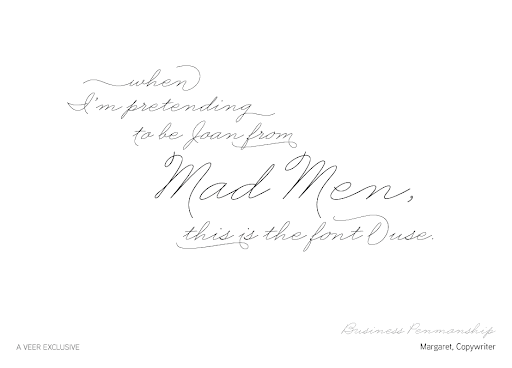 when
I'm pretending
to be Joan from
Mad Men,
this is the font I use.
Business Penmanship
A VEER EXCLUSIVE
Margaret, Copywriter